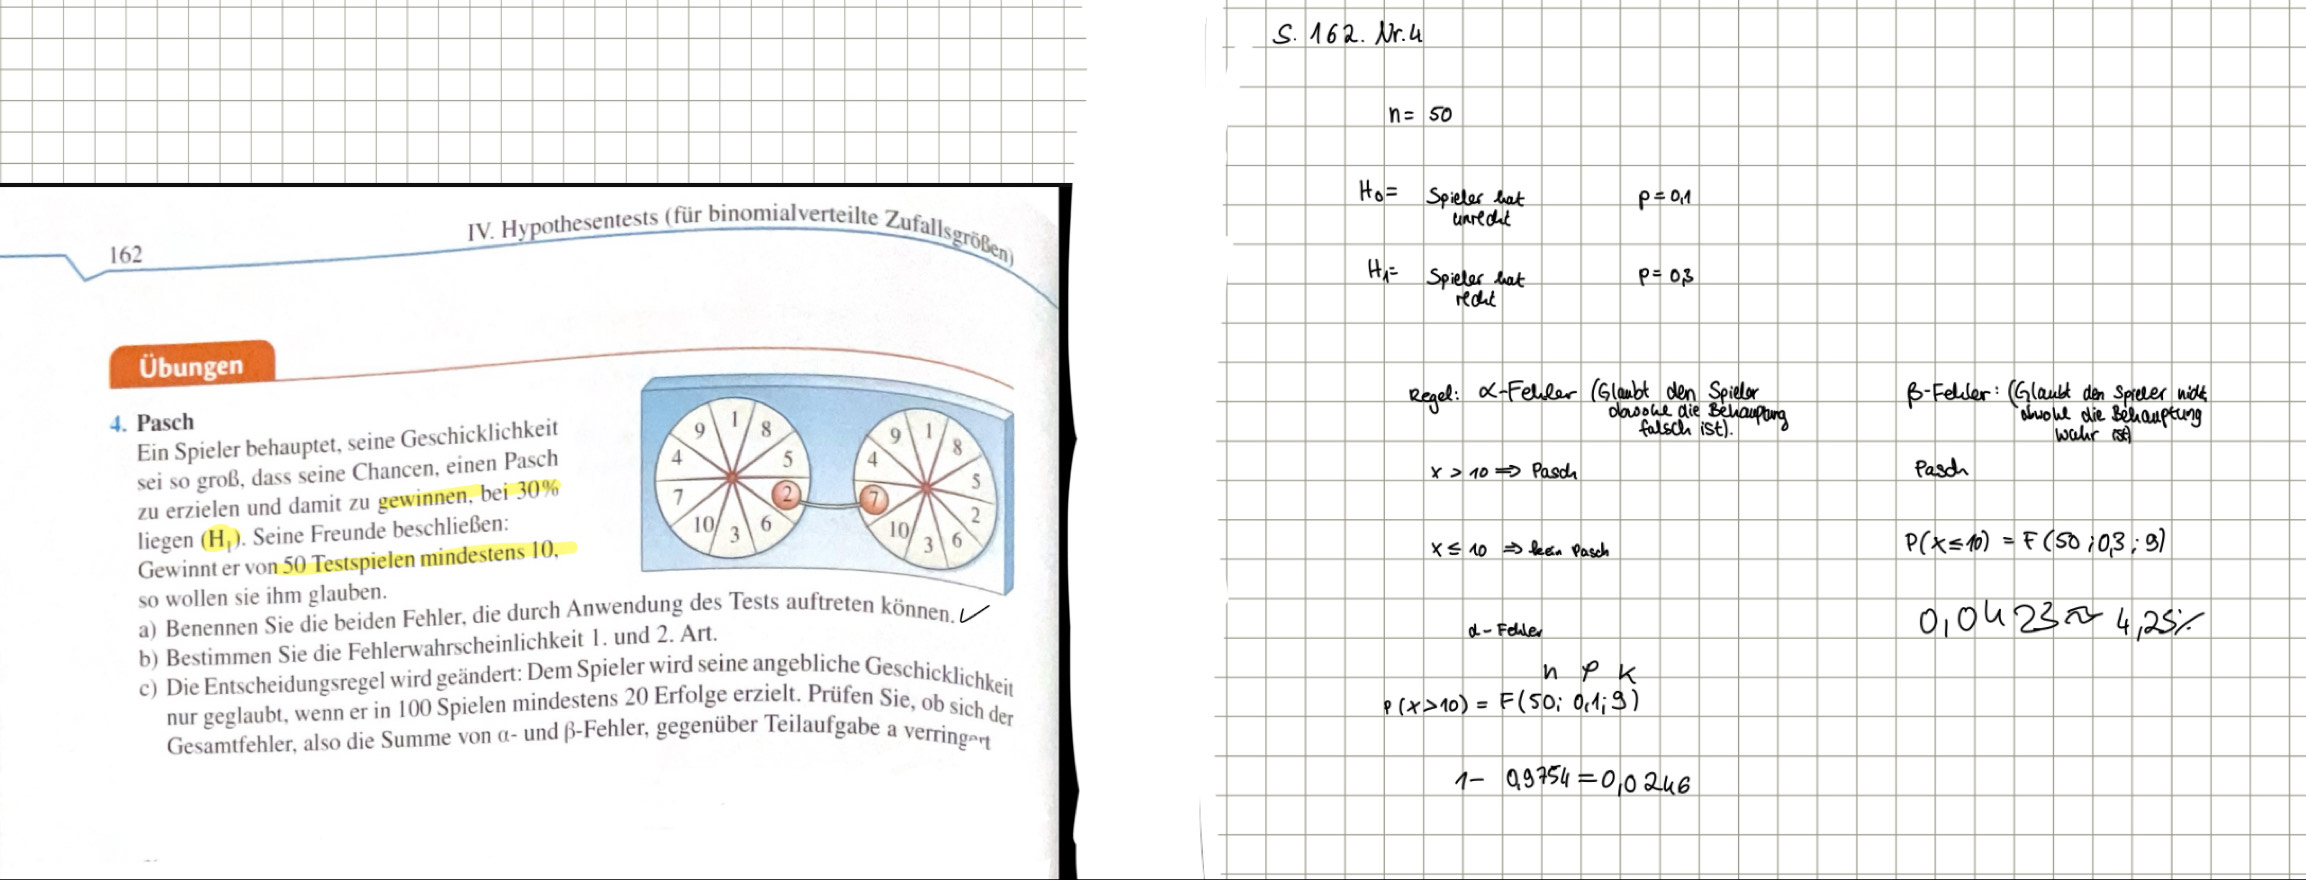 162
IV. Hypothesentests (für binomialverteilte Zufallsgrößen)
Übungen
4. Pasch
Ein Spieler behauptet, seine Geschicklichkeit
sei so groß, dass seine Chancen, einen Pasch
zu erzielen und damit zu gewinnen, bei 30%
liegen (H₁). Seine Freunde beschließen:
Gewinnt er von 50 Testspielen mindestens 10,
so wollen sie ihm glauben.
a) Benennen Sie die beiden Fehler, die durch Anwendung des Tests auftreten können. ✓
b) Bestimmen Sie die Fehlerwahrscheinlichkeit 1. und 2. Art.
c) Die Entscheidungsregel wird geändert: Dem Spieler wird seine angebliche Geschicklichkeit
nur geglaubt, wenn er in 100 Spielen mindestens 20 Erfolge erzielt. Prüfen Sie, ob sich der
Gesamtfehler, also die Summe von α- und β-Fehler, gegenüber Teilaufgabe a verringert
9 1 8 5 2 6 3 10 7 4
9 1 8 5 2 6 3 10 7 4
S. 162. Nr. 4
n = 50
H₀= Spieler hat p = 0,1
unrecht
H₁= Spieler hat p = 0,3
recht
Regel: α-Fehler (Glaubt den Spieler
obwohl die Behauptung
falsch ist).
x > 10 ⇒ Pasch
x ≤ 10 ⇒ kein Pasch
α-Fehler
n p k
P(x>10) = F(50; 0,1; 9)
1- 0,9754 = 0,0246
β-Fehler: (Glaubt den Spieler nicht
obwohl die Behauptung
wahr ist)
Pasch
P(x≤10) = F(50; 0,3; 9)
0,0423 ≈ 4,23%